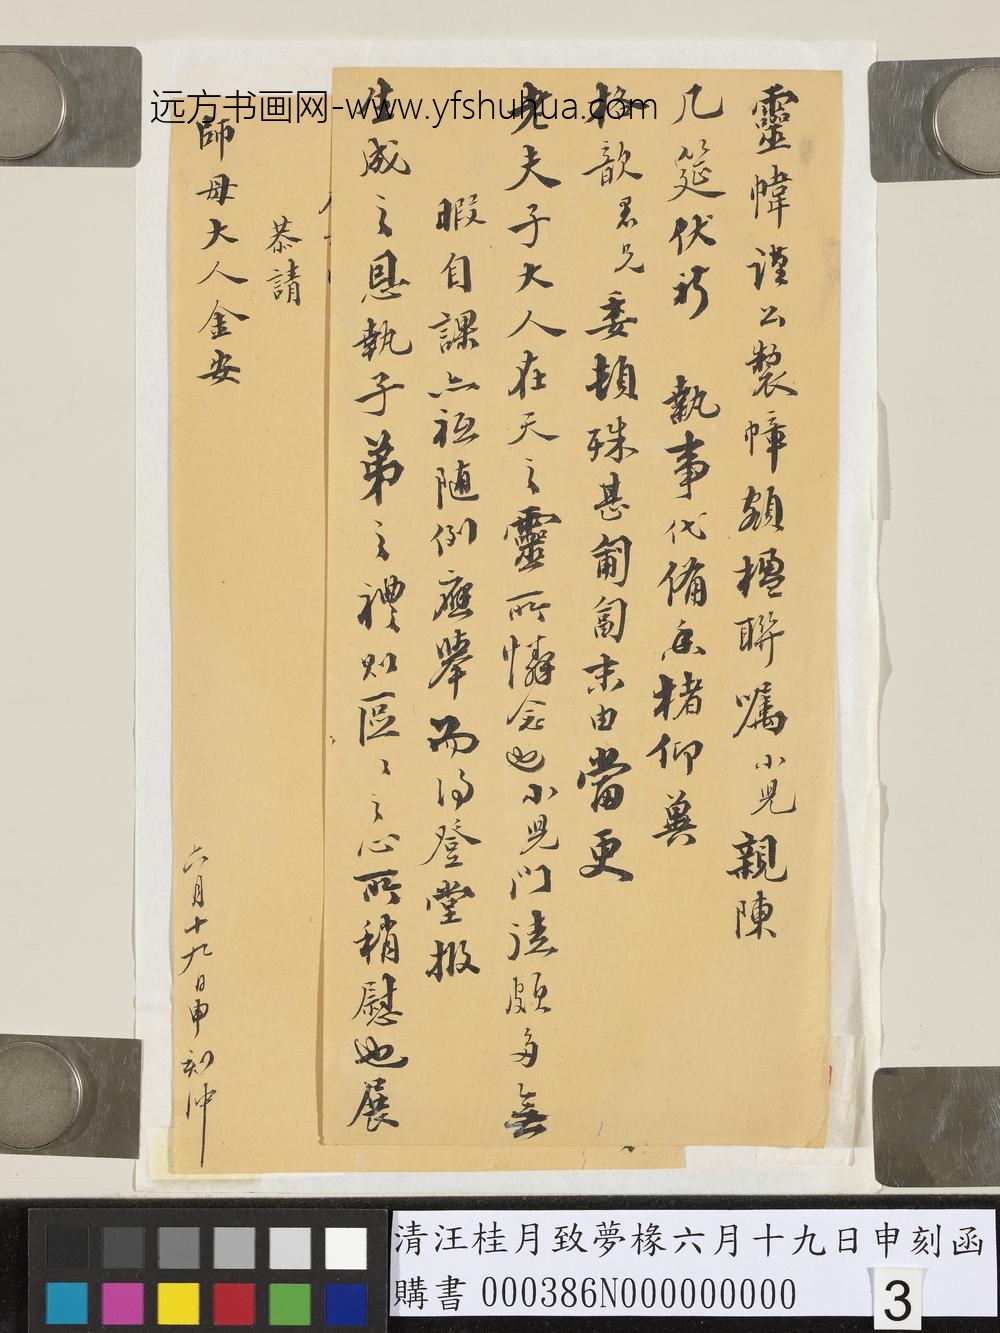 远方书画网-www.yfshuhua.com
靈幃謹公製幛額楹聯囑小兒親陳
几筵伏祈 執事代備香楮仰奠
格歆君兄委頓殊甚匍匐末由當更
老夫子大人在天之靈所憐念也小兒門徒頗多無
暇自課亦祗隨例應舉而得登堂报
生成之恩執子弟之禮則區々之心所稍慰也展
恭請
師母大人金安
六月十九日申刻沖
清汪桂月致夢椽六月十九日申刻函
購書 000386N000000000
3